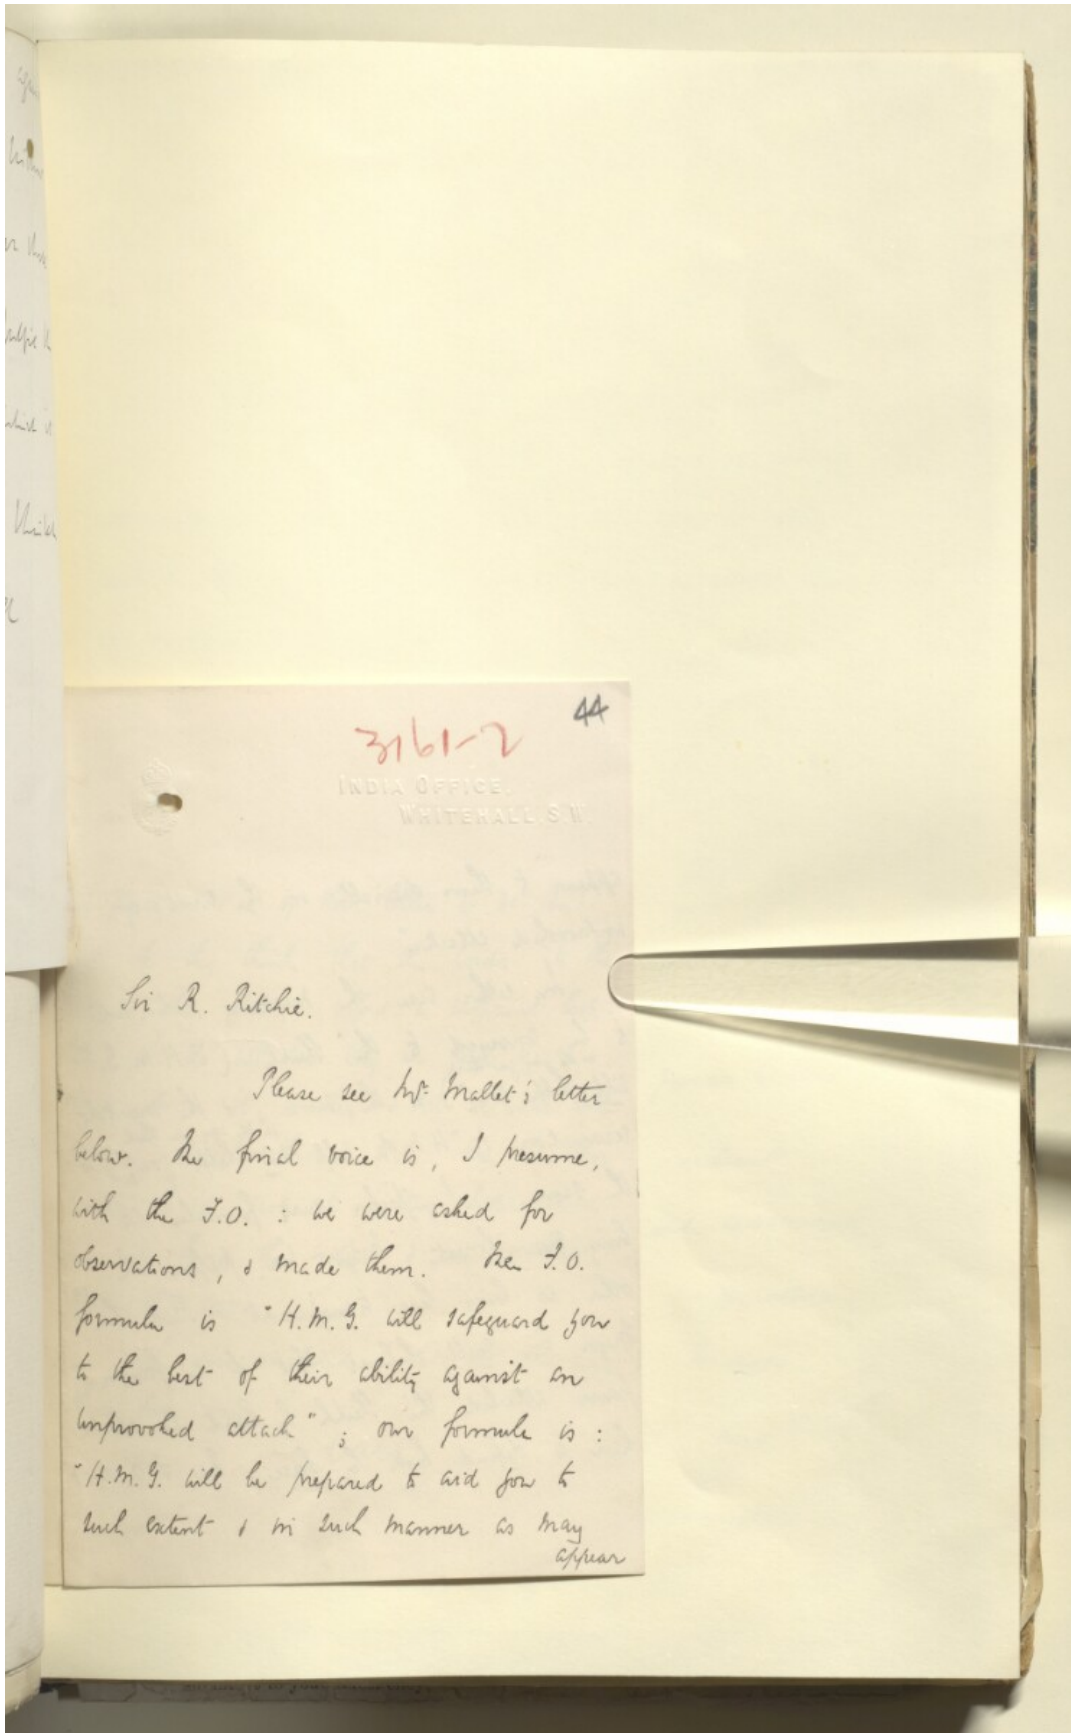 44
3161-2
INDIA OFFICE,
WHITEHALL, S.W.
Sir R. Ritchie.
Please see Mr. Mallet's letter
below. The final voice is, I presume,
with the F.O. : we were asked for
observations, & made them. The F.O.
formula is "H.M.G. will safeguard you
to the best of their ability against an
unprovoked attack" ; our formula is :
"H.M.G. will be prepared to aid you to
such extent & in such manner as may
appear